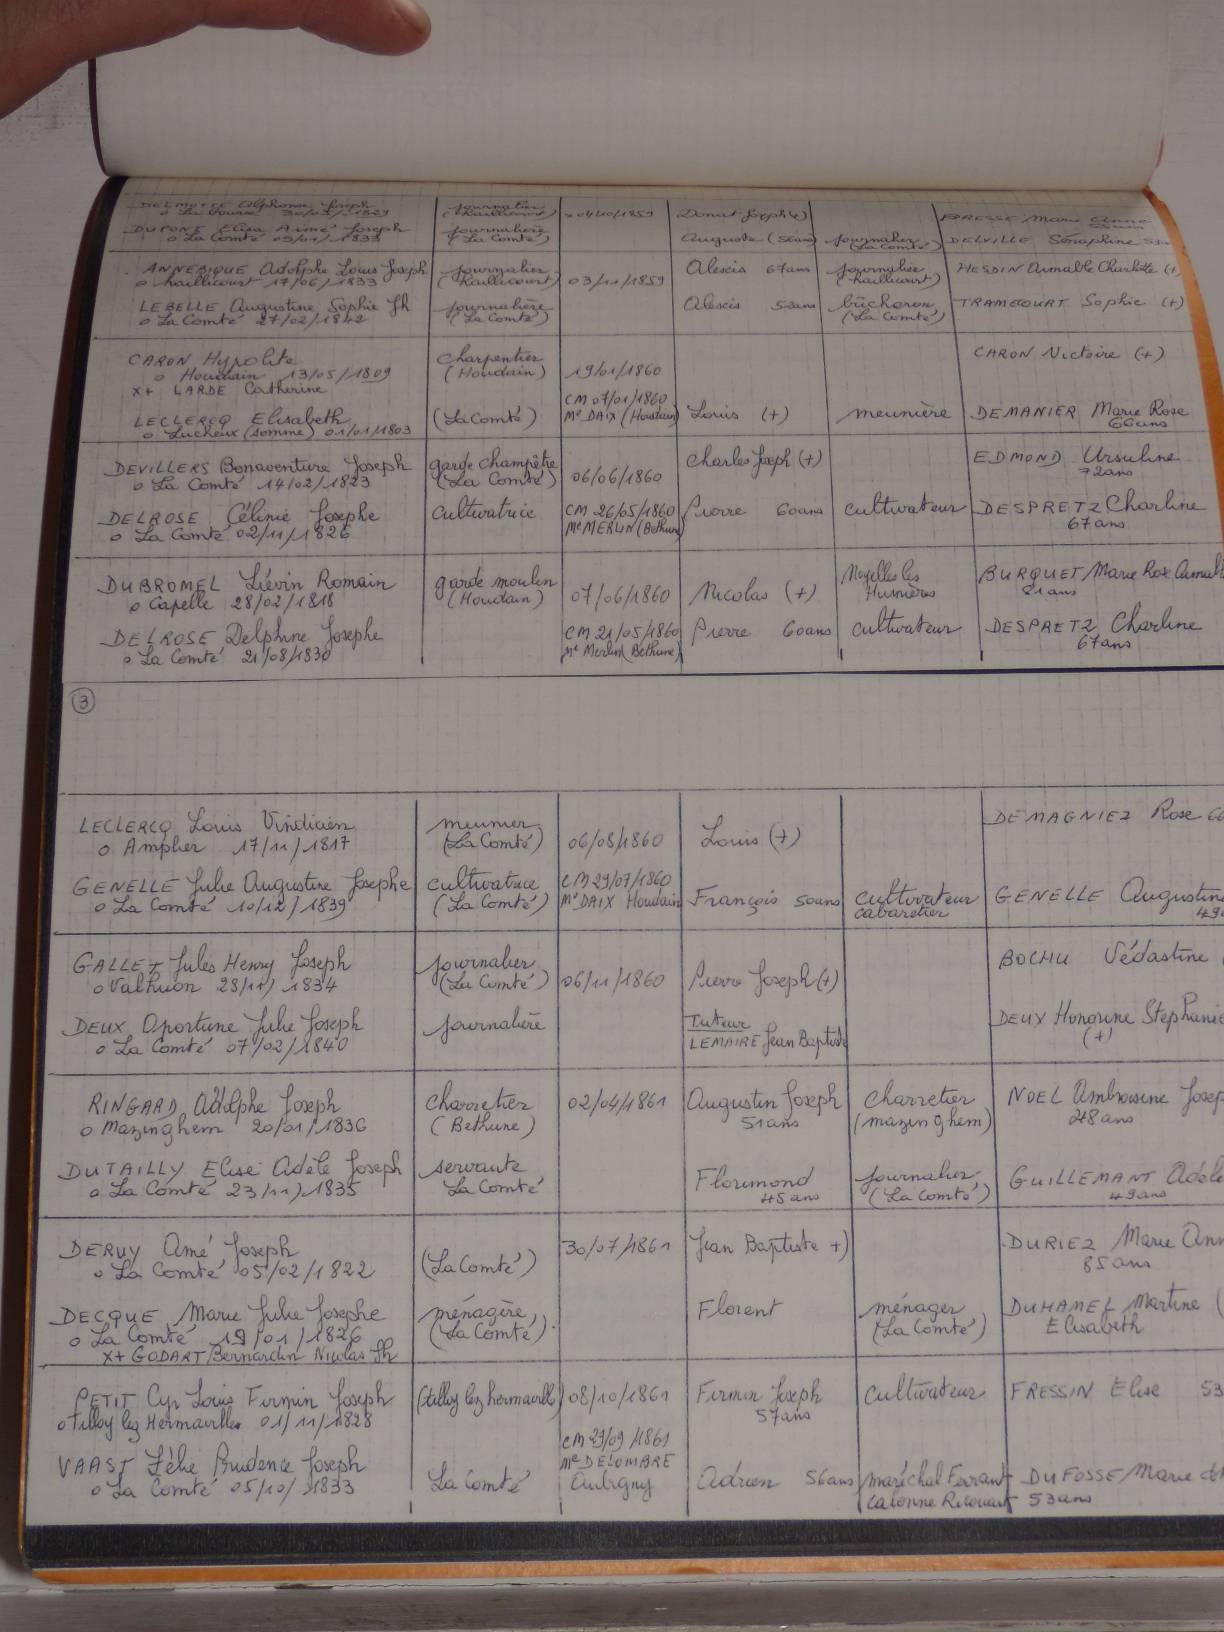 DELMOTTE Alphonse Joseph journalier Donat Joseph (+) BRESSE Marie Anne
o La Bourse 30/03/1829 (Haillicourt) 04/10/1859
DUPONT Elisa Aimé Joseph journalière Auguste (56ans) journalier DELVILLE Séraphine
o La Comté 09/01/1833 (La Comté) (La Comté)
ANNEBIQUE Adolphe Louis Joseph journalier Alexis 67ans journalier HESDIN Armable Charlotte (+)
o haillicourt 17/06/1833 (haillicourt) 03/11/1859 (haillicourt)
LEBELLE Augustine Sophie Jh journalière Alexis 52ans bûcheron TRAMECOURT Sophie (+)
o La Comté 27/02/1842 (La Comté) (La Comté)
CARON Hypolite charpentier CARON Victoire (+)
o Houdain 13/05/1809 (Houdain) 19/01/1860
x+ LARDE Catherine
CM 07/01/1860
LECLERCQ Elisabeth (La Comté) Me DAIX (Houdain) Louis (+) meunière DEMANIER Marie Rose
o Lucheux (somme) 01/01/1803 66ans
DEVILLERS Bonaventure Joseph garde champêtre Charles Joseph (+) EDMOND Ursuline
o La Comté 14/02/1823 (La Comté) 06/06/1860 72ans
DELROSE Célinie Josephe cultivatrice CM 26/05/1860 Pierre 60ans cultivateur DESPRETZ Charline
o La Comté 02/11/1826 Me MERLIN (Bethune) 67ans
DUBROMEL Liévin Romain garde moulin Noyelles les BURQUET Marie Rose Armab
o Capelle 28/02/1818 (Houdain) 07/06/1860 Nicolas (+) Humières 81ans
DELROSE Delphine Josephe CM 21/05/1860 Pierre 60ans cultivateur DESPRETZ Charline
o La Comté 21/08/1830 Me Merlin (Bethune) 67ans
3
LECLERCQ Louis Vindicien meunier DEMAGNIEZ Rose
o Amplier 17/11/1817 (La Comté) 06/08/1860 Louis (+)
GENELLE Julie Augustine Josephe cultivatrice CM 29/07/1860 François 50ans cultivateur GENELLE Augustine
o La Comté 10/12/1839 (La Comté) Me DAIX Houdain cabaretier 49
GALLET Jules Henry Joseph journalier BOCHU Védastine
o Valhuon 28/11/1834 (La Comté) 06/11/1860 Pierre Joseph (+)
DEUX Oportune Julie Joseph journalière Tuteur DEUX Honorine Stephanie
o La Comté 07/02/1840 LEMAIRE Jean Baptiste (+)
RINGARD Adolphe Joseph charretier 02/04/1861 Augustin Joseph charretier NOEL Ambroisine Josep
o Mazinghem 20/01/1836 (Bethune) 51ans (mazinghem) 48ans
DUTAILLY Elise Adèle Joseph servante Florimond journalier GUILLEMANT Adèle
o La Comté 23/11/1835 La Comté 45ans (La Comté) 49ans
DERUY Amé Joseph 30/07/1861 Jean Baptiste +) DURIEZ Marie Ann
o La Comté 05/02/1822 (La Comté) 85ans
DECQUE Marie Julie Josephe ménagère Florent ménager DUHAMEL Martine (
o La Comté 19/01/1826 (La Comté) (La Comté) Elisabeth
x+ GODART Bernardin Nicolas Jh
PETIT Cyr Louis Firmin Joseph (tilloy lez hermaville) 08/10/1861 Firmin Joseph cultivateur FRESSIN Elise 53
o Tilloy lez Hermavilles 01/11/1828 57ans
CM 29/09/1861
VAAST Zélie Prudence Joseph Me DELOMBRE
o La Comté 05/10/1833 La Comté Aubigny Adrien 56ans maréchal Ferrant DUFOSSE Marie
Calonne Ricouart 53ans